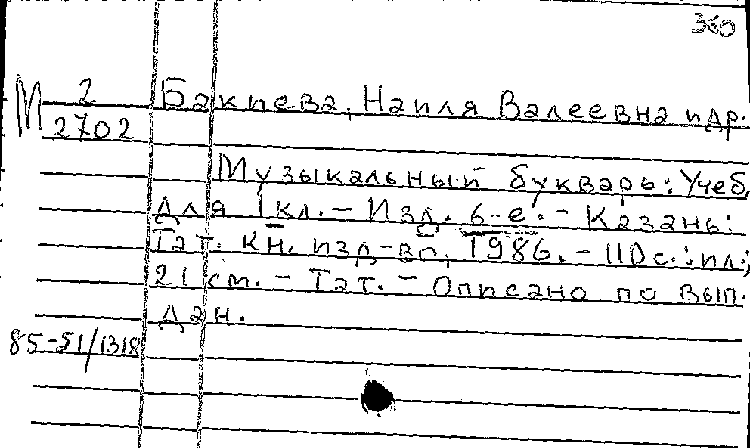 360
М 2
2702
Бакиева, Наиля Валеевна и др.
Музыкальный букварь: Учеб.
для 1 кл. – Изд. 6-е. – Казань:
Тат. кн. изд-во, 1986. – 110 с.: ил.;
21 см. – Тат. – Описано по вып.
дан.
85-51/1318